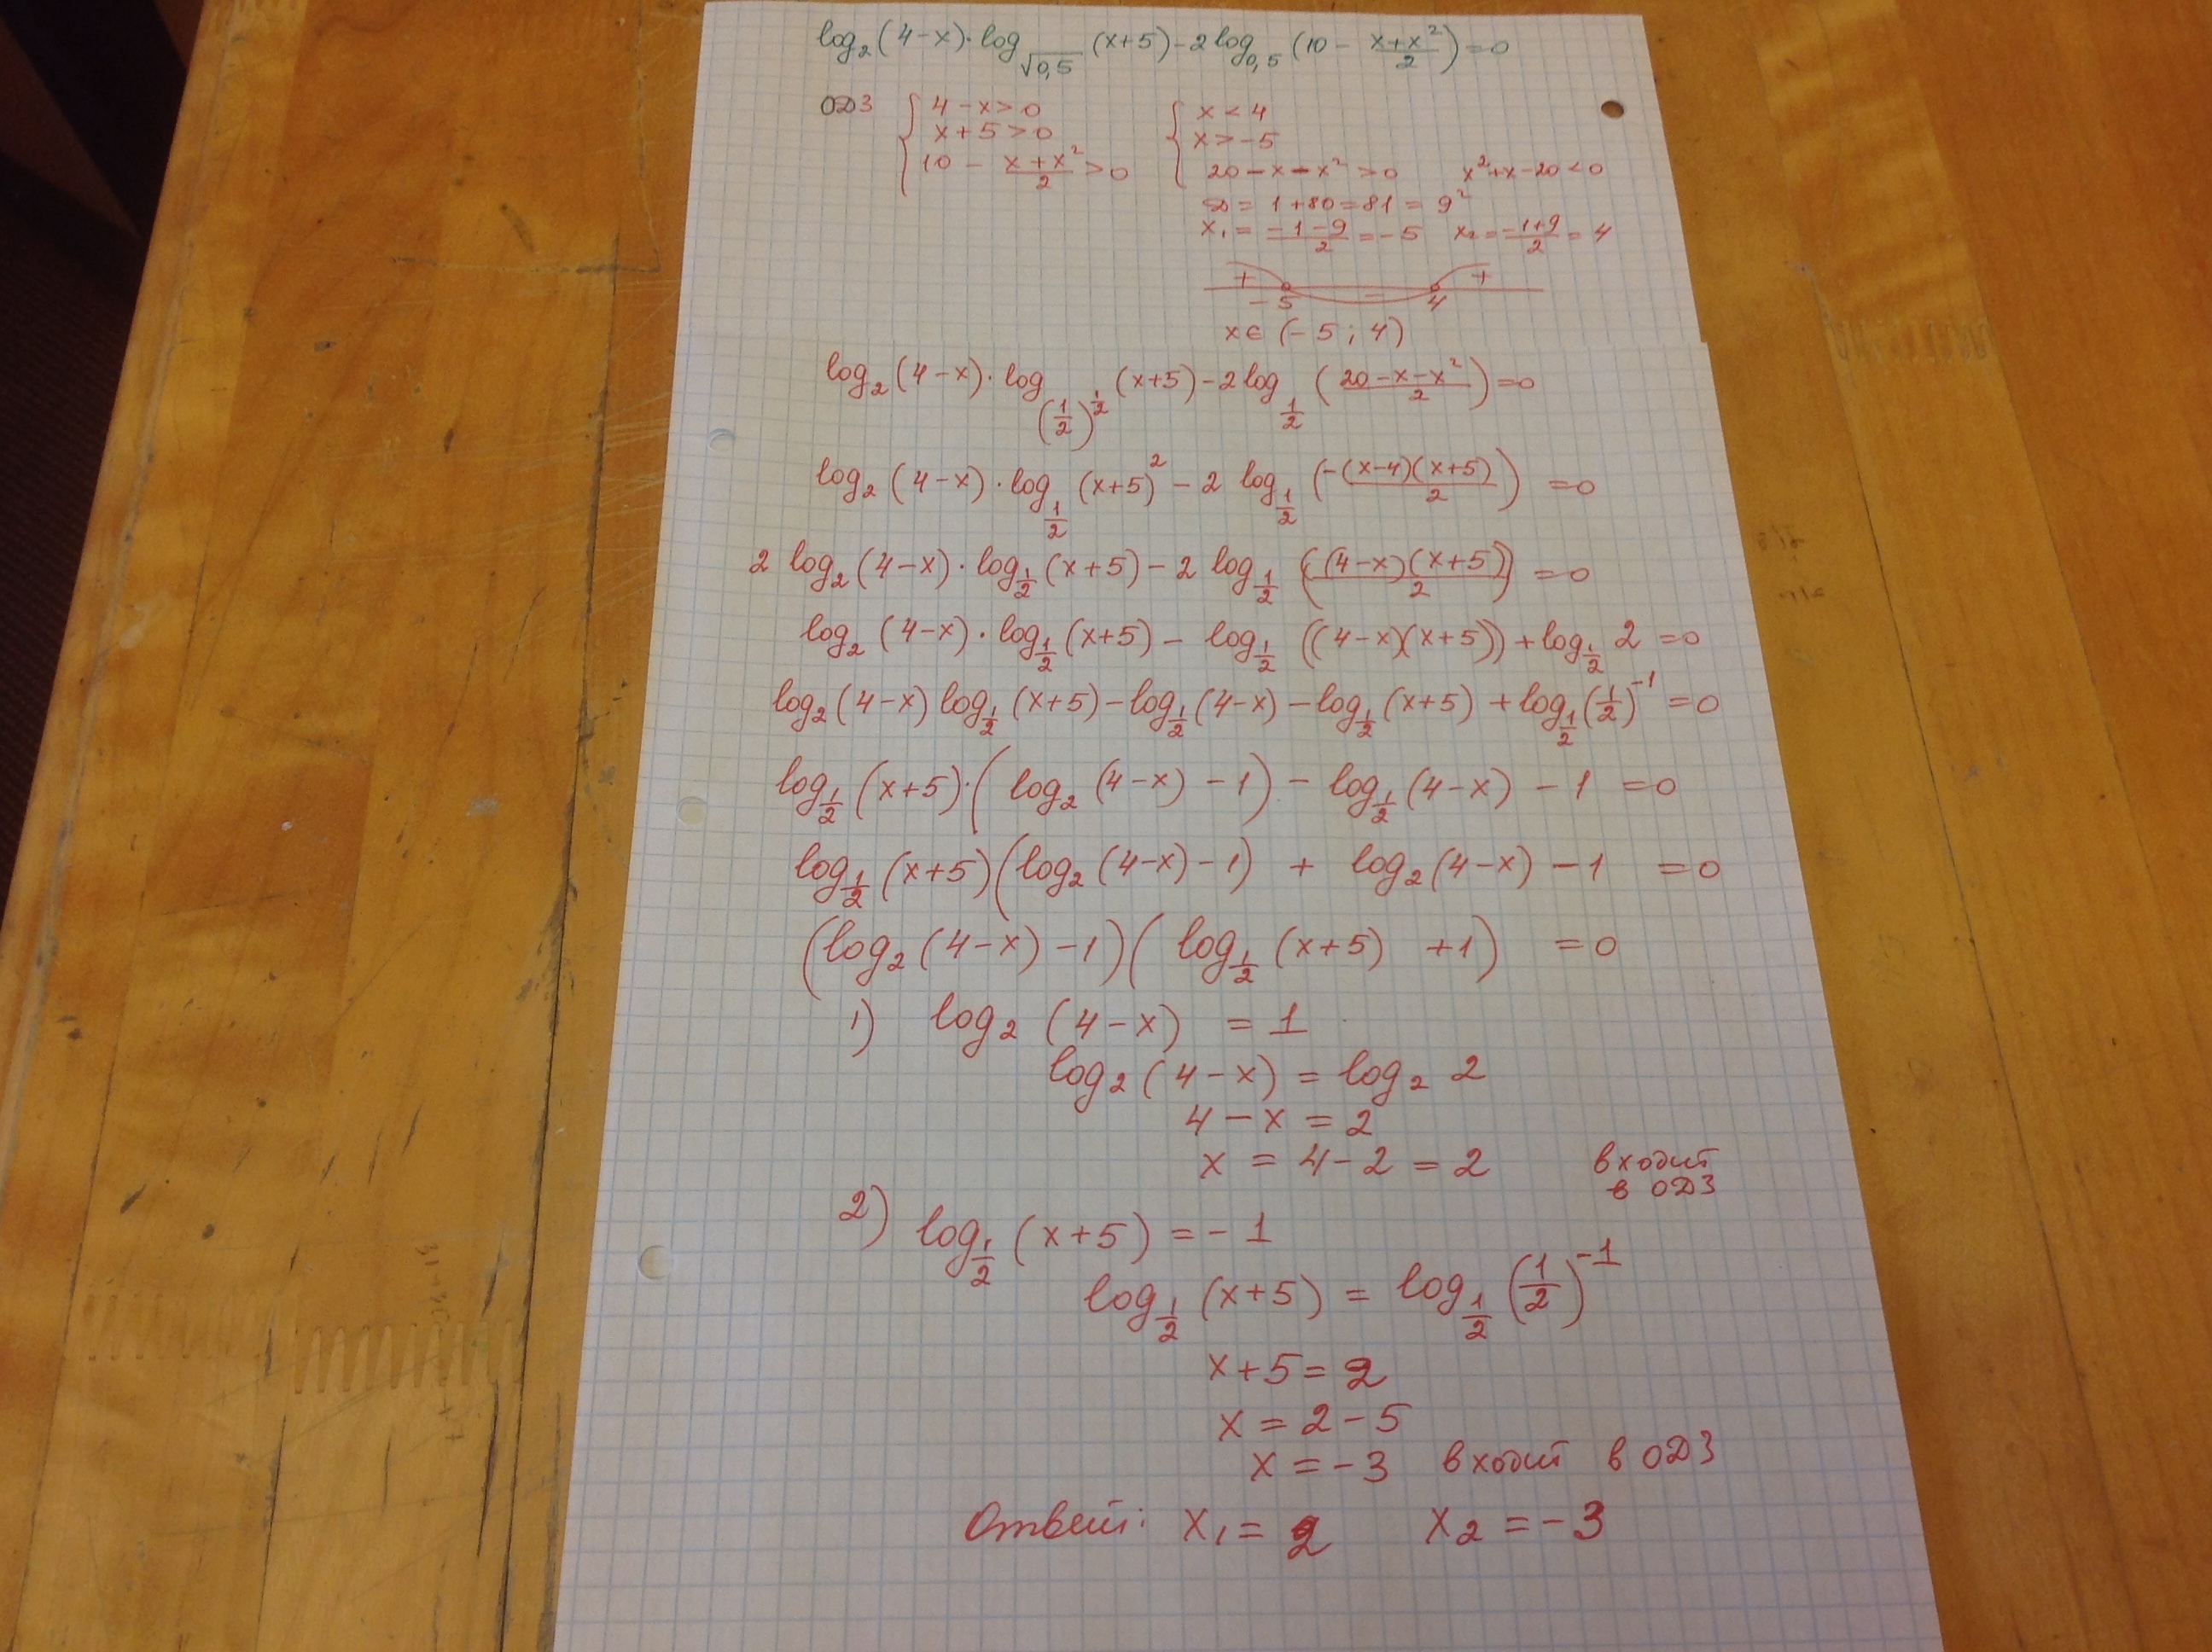 log₂(4-x)·log_√0,5 (x+5)-2log_0,5 (10 - (x+x²)/2)=0
ОДЗ { 4-x>0 { x<4
x+5>0 x>-5
10 - (x+x²)/2 >0 20-x-x²>0 x²+x-20<0
D = 1+80=81 = 9²
x₁ = (-1-9)/2 = -5 x₂ = (-1+9)/2 = 4
+ - +
-5 4
x ∈ (-5 ; 4)
log₂(4-x)·log_(1/2)^(1/2) (x+5)-2log_1/2 ((20-x-x²)/2)=0
log₂(4-x)·log_1/2 (x+5)² - 2 log_1/2 (-(x-4)(x+5)/2) =0
2 log₂(4-x)·log_1/2 (x+5)-2 log_1/2 (((4-x)(x+5))/2) =0
log₂(4-x)·log_1/2 (x+5) - log_1/2 ((4-x)(x+5)) + log_1/2 2 =0
log₂(4-x) log_1/2 (x+5)-log_1/2 (4-x)-log_1/2 (x+5) + log_1/2 (1/2)⁻¹ =0
log_1/2 (x+5)·(log₂(4-x)-1) - log_1/2 (4-x) - 1 =0
log_1/2 (x+5)(log₂(4-x)-1) + log₂(4-x) - 1 =0
(log₂(4-x)-1)(log_1/2 (x+5) +1) =0
1) log₂(4-x) = 1
log₂(4-x) = log₂ 2
4-x = 2
x = 4-2 = 2 входит
в ОДЗ
2) log_1/2 (x+5) = -1
log_1/2 (x+5) = log_1/2 (1/2)⁻¹
x+5=2
x = 2-5
x = -3 входит в ОДЗ
Ответ: x₁ = 2 x₂ = -3